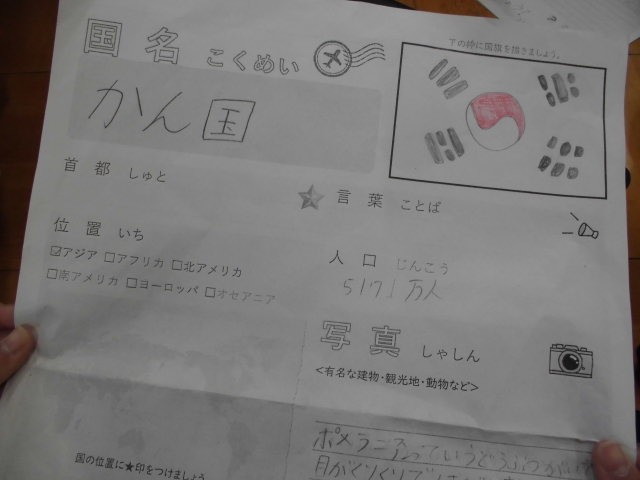 国名 こくめい
下の枠に国旗を描きましょう。
かん国
首都 しゅと
言葉 ことば
位置 いち
☑アジア □アフリカ □北アメリカ
□南アメリカ □ヨーロッパ □オセアニア
人口 じんこう
5171万人
写真 しゃしん
<有名な建物・観光地・動物など>
国の位置に★印をつけましょう
ポメラニアンっていうどうぶつがいて
目がくりくりで